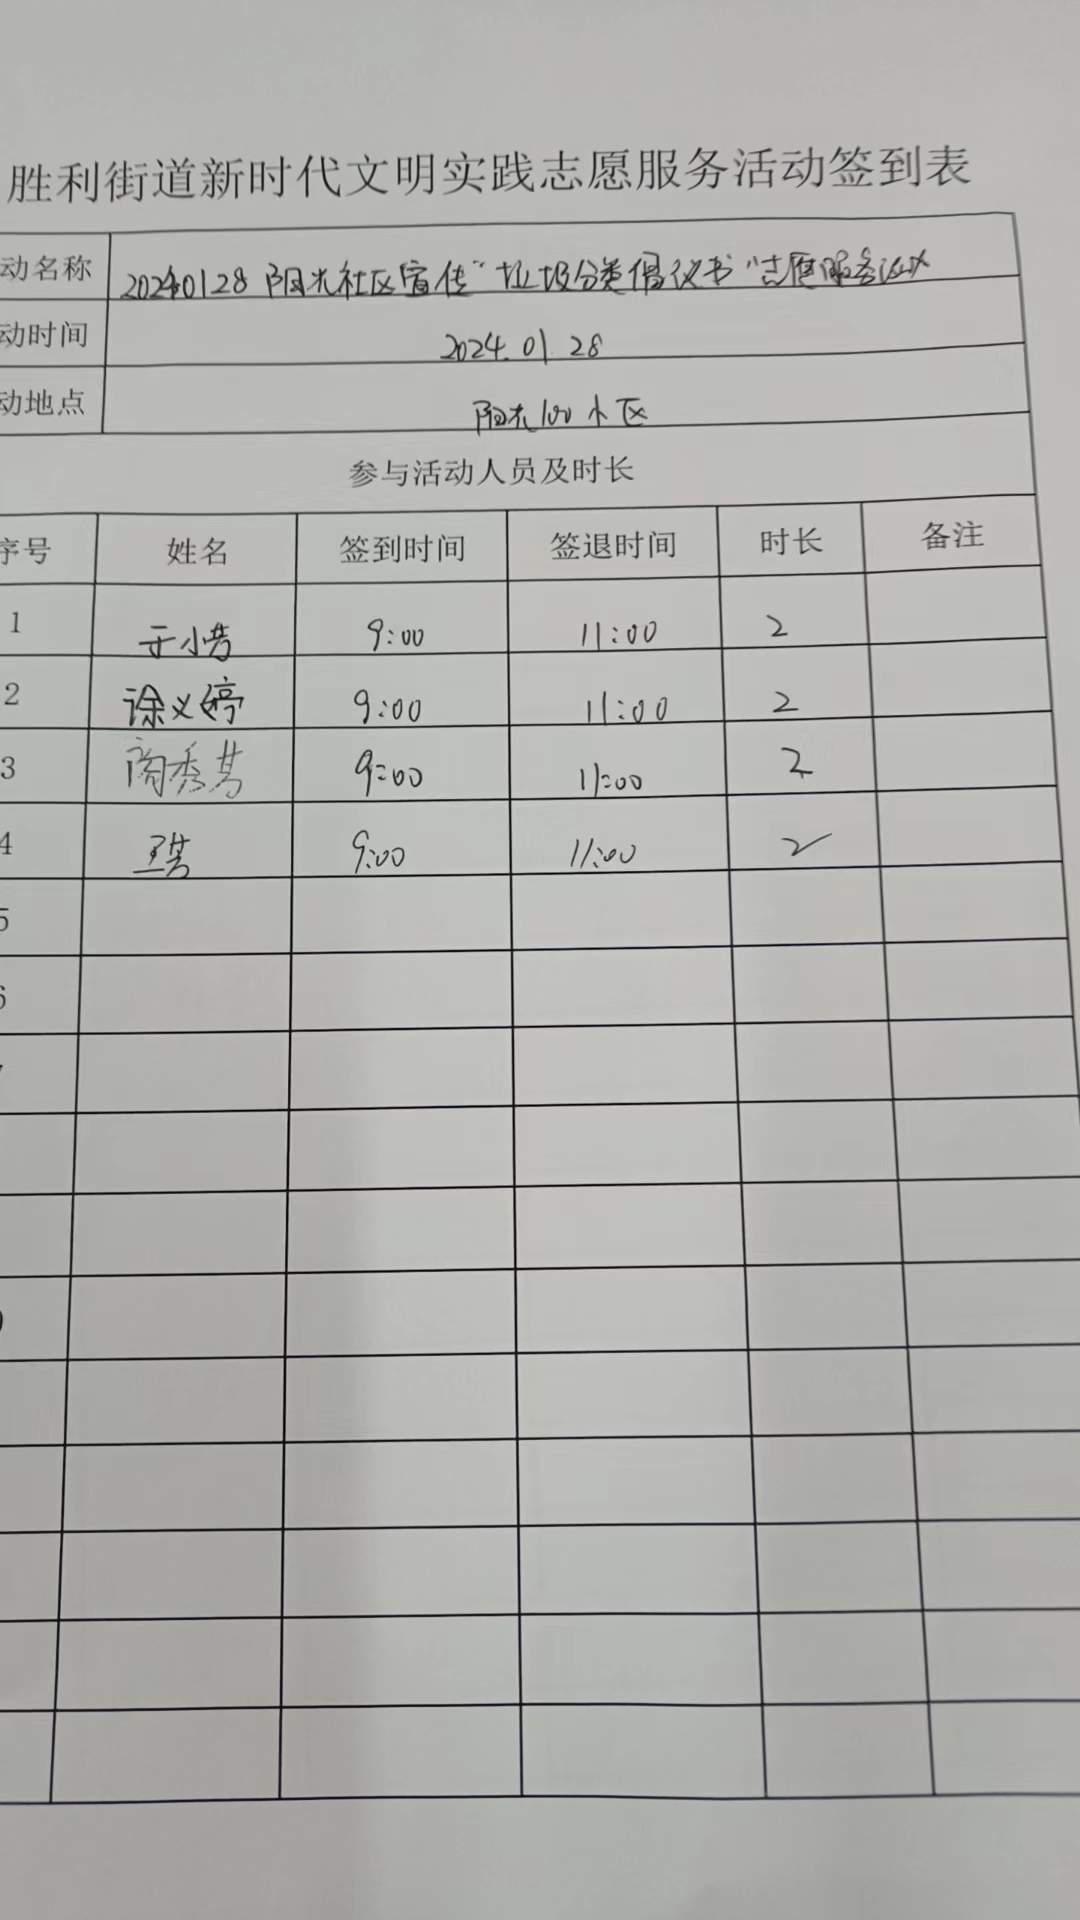 胜利街道新时代文明实践志愿服务活动签到表
动名称 20240128 阳光社区宣传"垃圾分类倡议书"志愿服务活动
动时间 2024.01.28
动地点 阳光100小区
参与活动人员及时长
序号 姓名 签到时间 签退时间 时长 备注
1 于小芳 9:00 11:00 2
2 徐义婷 9:00 11:00 2
3 秀芳 9:00 11:00 2
4 9:00 11:00 2
5
6